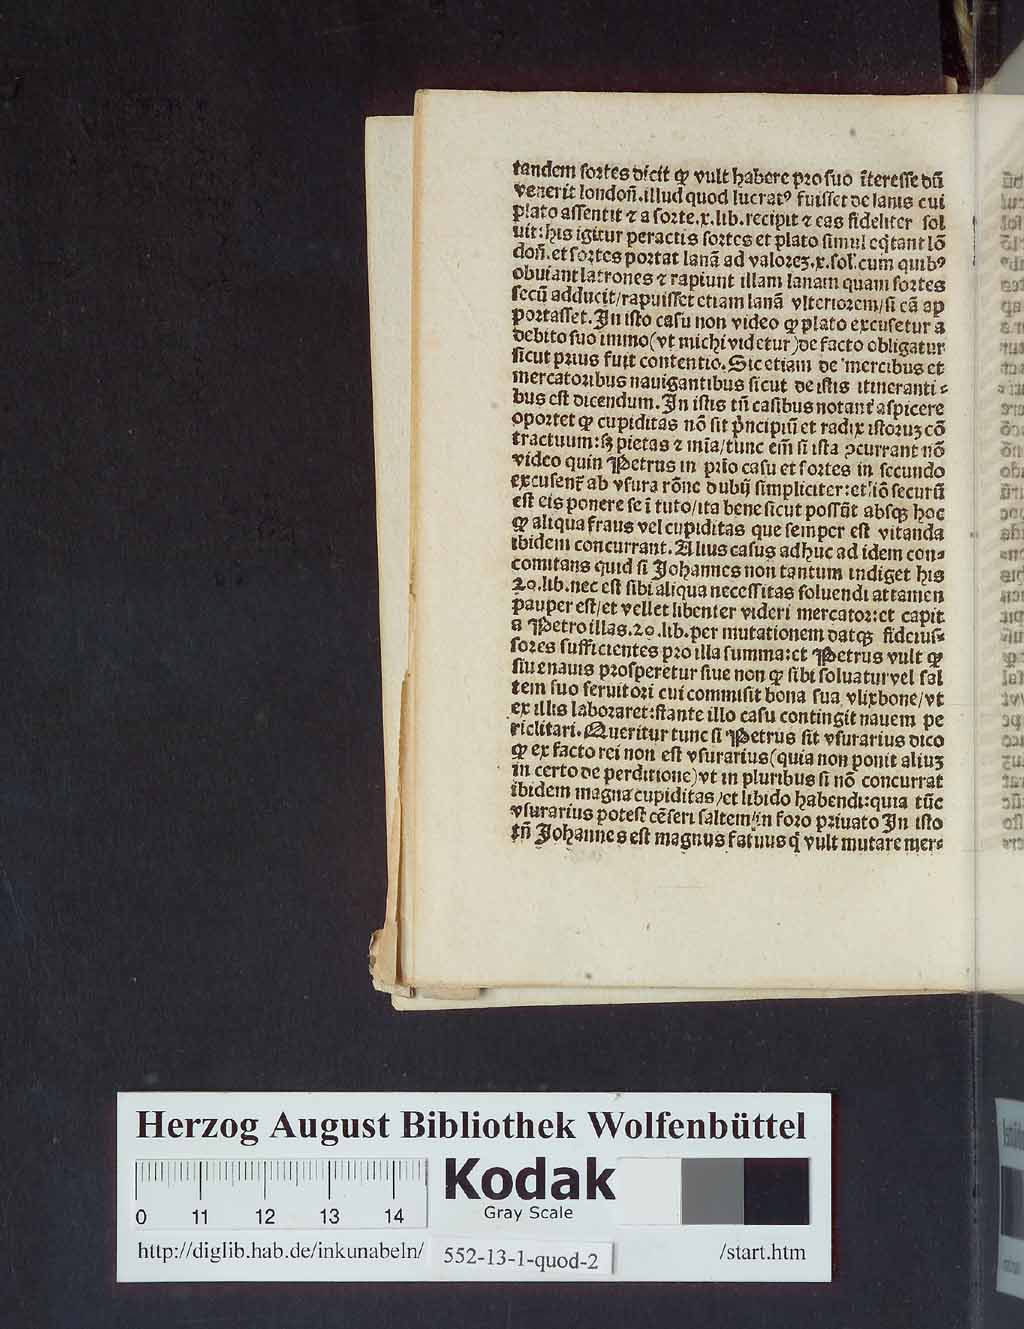 tandem sortes dicit ꝙ vult habere pro suo ĩteresse dũ
venerit londoñ. illud quod lucratꝰ fuisset de lanis cui
plato assentit ⁊ a sorte.x.lib.recipit ⁊ eas fideliter sol
uit: his igitur peractis sortes et plato simul eq̃tant lõ
doñ. et sortes portat lanã ad valoreꝫ.x.sol. cum quibꝰ
obuiant latrones ⁊ rapiunt illam lanam quam sortes
secũ adducit/rapuisset etiam lanã vlteriorem/si eã ap
portasset. In isto casu non video ꝙ plato excusetur a
debito suo immo(vt michi videtur)de facto obligatur
sicut prius fuit contentio. Sic etiam de mercibus et
mercatoribus nauigantibus sicut de istis itineranti⸗
bus est dicendum. In istis tñ casibus notant᷑ aspicere
oportet ꝙ cupiditas nõ sit pͥncipiũ et radix istoruꝫ cõ
tractuum:sꝫ pietas ⁊ mĩa/tunc em̃ si ista ↄcurrant nõ
video quin Petrus in prĩo casu et sortes in secundo
excusent᷑ ab vsura rõne dubij simpliciter:et iõ securũ
est eis ponere se ĩ tuto/ita bene sicut possũt absqꝫ hoc
ꝙ aliqua fraus vel cupiditas que semper est vitanda
ibidem concurrant. Alius casus adhuc ad idem con⸗
comitans quid si Johannes non tantum indiget his
20.lib.nec est sibi aliqua necessitas soluendi attamen
pauper est/et vellet libenter videri mercator:et capit
a Petro illas.20.lib.per mutationem datqꝫ fideius⸗
sores sufficientes pro illa summa:et Petrus vult ꝙ
siue nauis prosperetur siue non ꝙ sibi soluatur vel sal
tem suo seruitori cui commisit bona sua vlixbone/vt
ex illis laboraret:stante illo casu contingit nauem pe
riclitari. Queritur tunc si Petrus sit vsurarius dico
ꝙ ex facto rei non est vsurarius(quia non ponit aliuꝫ
in certo de perditione)vt in pluribus si nõ concurrat
ibidem magna cupiditas/et libido habendi:quia tũc
vsurarius potest cẽseri saltem/in foro priuato In isto
tñ Johannes est magnus fatuus q̇ vult mutare mer⸗
Herzog August Bibliothek Wolfenbüttel
Kodak
Gray Scale
0 11 12 13 14
http://diglib.hab.de/inkunabeln/ 552-13-1-quod-2 /start.htm